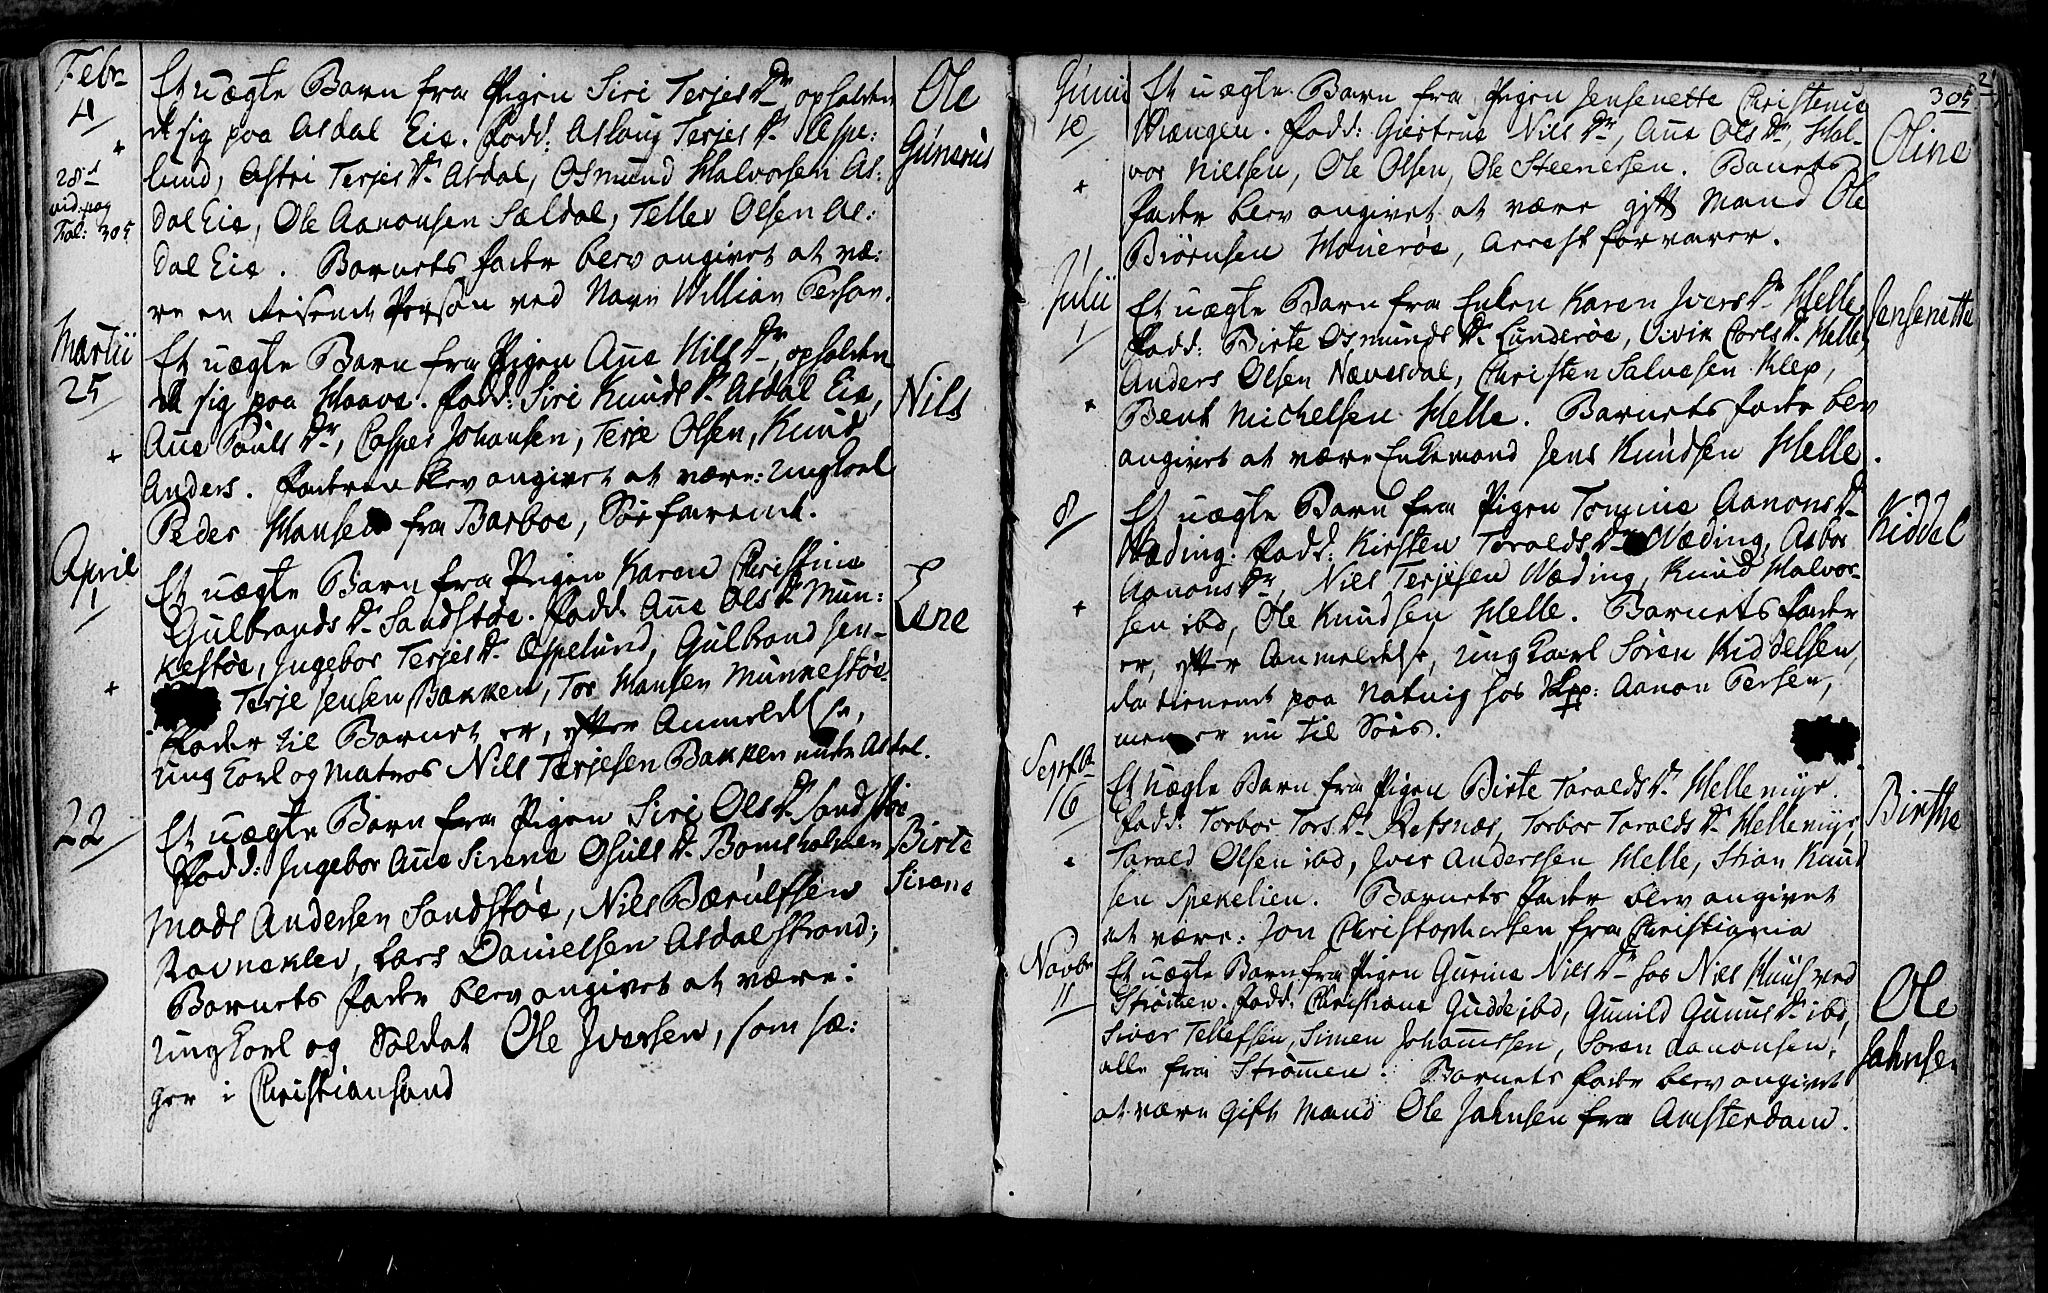 Febr
4
+
28d
vid. pag
Fol: 305
Et uægte Barn fra Pigen Siri Terjes Dr, opholden
de sig paa Asdal Eie. Fadd: Aslaug Terjes Dr Espe:
lund, Astri Terjes Dr Asdal, Osmund Halvorsen As:
dal Eie, Ole Aanonsen Sældal, Tellev Olsen As:
dal Eie. Barnets Fader blev angivet at væ:
re en Reisende Person ved Navn Willian Person.
Ole
Gunerius
Martii
25
+
Et uægte Barn fra Pigen Ane Nills Dr, opholden
de sig paa Haave. Fadd: Siri Knuds Dr Asdal Eie,
Ane Pouls Dr, Casper Johansen, Terje Olsen, Knud
Anders. Faderen blev angivet at være: ungkarl
Peder Hansen fra Barboe, Søefarende.
Nils
April
1
+
Et uægte Barn fra Pigen Karen Christine
Gulbrands Dr Sandstøe. Fadd: Ane Ols Dr Mun:
kestøe, Ingebor Terjes Dr Espelund, Gulbrand Jen-
Terje Jensen Bakken, Tor Hansen Munkestøe.
Fader til Barnet er, efter Anmeldelse,
ungkarl og Matros Nils Terjesen Bakken under Asdal.
Lene
22
Et uægte Barn fra Pigen Siri Ols Dr Sandstøe
Fadd: Ingebor Ane Sirene Osuls Dr Bomsholmen
Mads Andersen Sandstøe, Nils Bærulfsen
Ravneklev, Lars Danielsen Asdalstrand;
Barnets Fader blev angivet at være:
ungkarl og Soldat Ole Iversen, som sæ:
ger i Christiansand
Birte
Sirene
305
Junii
10
+
Et uægte Barn fra Pigen Jensenette Christenie
Vrængen. Fadd: Giertrue Nils Dr, Ane Ols Dr, Hal-
vor Nielsen, Ole Olsen, Ole Steenersen. Barnets
Fader blev angivet at være gift Mand Ole
Biørnsen Houerøe, Arrestforvarer.
Oline
Julii
1
+
Et uægte Barn fra Enken Karen Ivers Dr Helle,
Fadd: Birte Osmunds Dr Lunderøe, Vivik Carls Dr Helle,
Anders Olsen Nævesdal, Christen Salvesen Klep,
Bent Michelsen Helle. Barnets Fader blev
angivet at være Enkemand Jens Knudsen Helle.
Jensenette
8
+
Et uægte Barn fra Pigen Tomine Aanons Dr
Væding. Fadd: Kirsten Taralds Dr Væding, Asbor
Aanons Dr, Niels Terjesen Væding, Knud Halvor-
sen ibd, Ole Knudsen Helle. Barnets Fader
er, efter Anmeldelse, ungkarl Søren Kiddelsen,
da tienende paa Natvig hos Aanon Persen,
men er nu til Søes.
Kiddel
Septbr
16
Et uægte Barn fra Pigen Birte Taralds Dr Hellemyr.
Fadd: Torbor Tors Dr Refsnæs, Torbor Taralds Dr Hellemyr,
Tarald Olsen ibd, Iver Anderssen Helle, Stian Knud
sen Spekelien. Barnets Fader blev angivet
at være: Jon Christophersen fra Christiania
Birthe
Novbr
11
Et uægte Barn fra Pigen Gurine Nils Dr hos Nils Huus ved
Strømen. Fadd: Christiane Gudde ibd, Gunild Gunus Dr ibd,
Siver Tellefsen, Simen Johannssen, Søren Aanonsen,
alle fra Strømen. Barnets Fader blev angivet
at være Gift Mand Ole Jahnsen fra Amsterdam.
Ole
Jahnsen